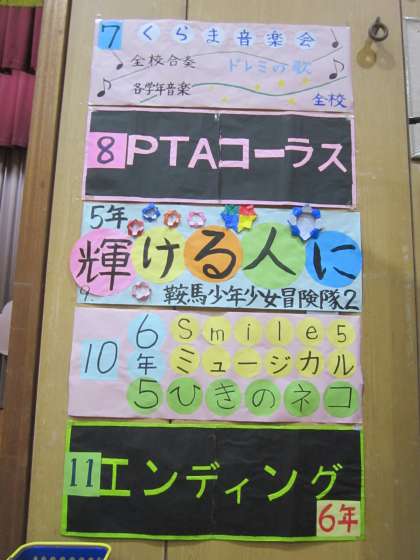 7 くらま音楽会
全校合奏 ドレミの歌
各学年音楽
全校
8 PTAコーラス
5年
輝ける人に
9. 鞍馬少年少女冒険隊2
10 6年 Smile5
ミュージカル
5ひきのネコ
11 エンディング
6年